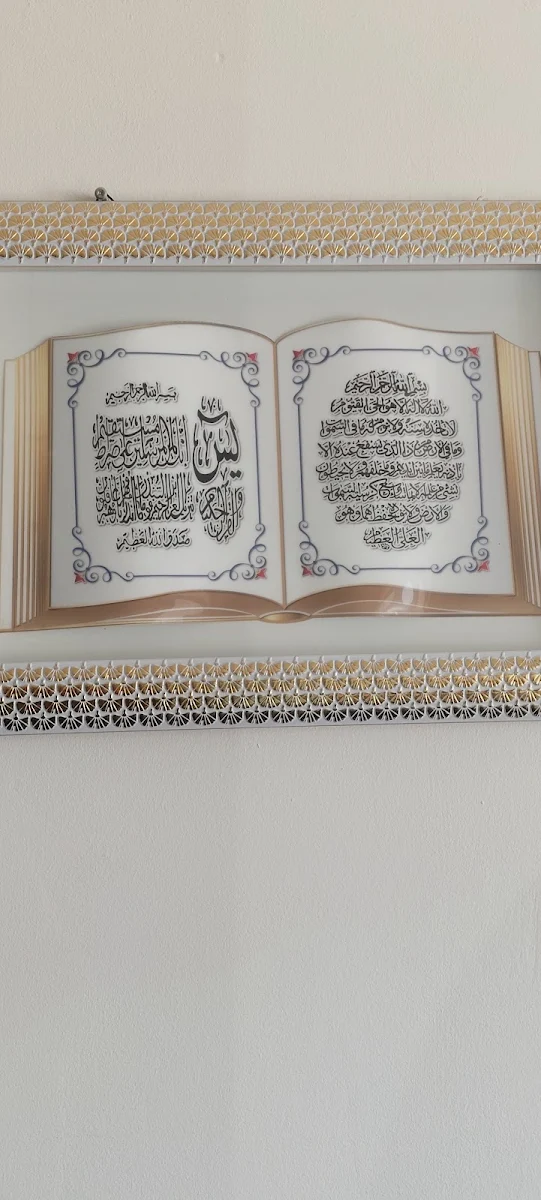 بسم الله الرحمن الرحيم
الله لا اله الا هو الحي القيوم
لا تأخذه سنة ولا نوم له ما في السموات
وما في الارض من ذا الذي يشفع عنده الا
باذنه يعلم ما بين ايديهم وما خلفهم ولا يحيطون
بشيء من علمه الا بما شاء وسع كرسيه السموات
والارض ولا يؤده حفظهما وهو
العلي العظيم
بسم الله الرحمن الرحيم
يس
والقرآن الحكيم
إنك لمن المرسلين على صراط مستقيم
تنزيل العزيز الرحيم لتنذر قوما ما أنذر آباؤهم فهم غافلون
صدق الله العظيم